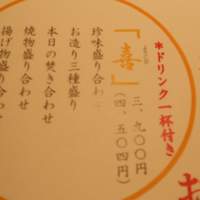 *ドリンク一杯付き
『喜』
よろこび
三、九〇〇円
(四、五〇四円)
珍味盛り合わせ
お造り三種盛り
本日の焚き合わせ
焼物盛り合わせ
揚げ物盛り合わ
お